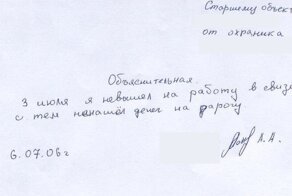 Старшему объект
от охраника
Объяснительная
3 июля я невышел на работу в связи
с тем ненашёл денег на дарогу
6.07.06г А.А.